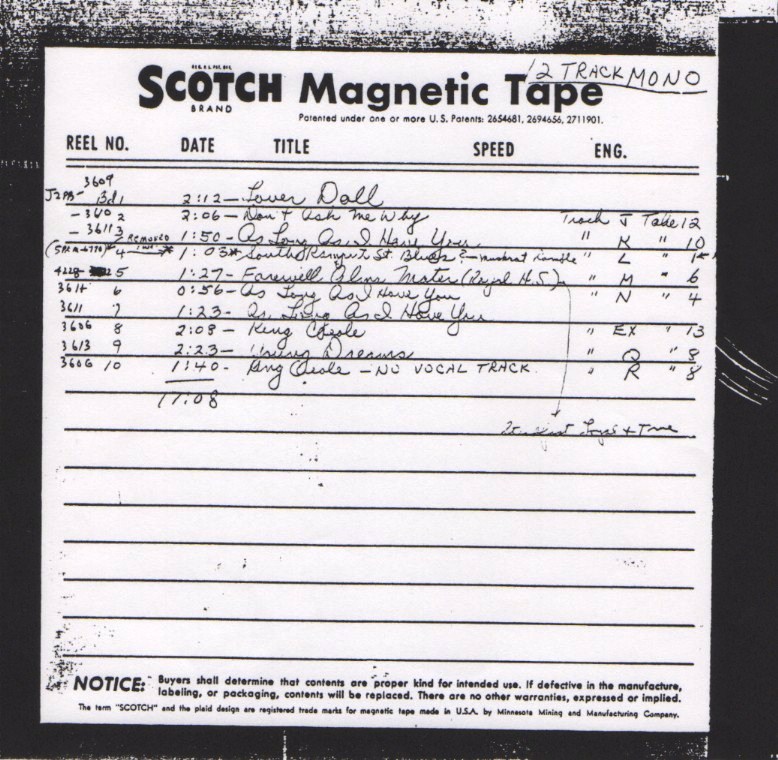 1/2 TRACK MONO
SCOTCH Magnetic Tape
BRAND
Patented under one or more U. S. Patents: 2654681, 2694656, 2711901.
REEL NO. DATE TITLE SPEED ENG.
3609
J2PB- 1 2:12 - Lover Doll
- 3602 2:06 - Don't Ask Me Why Track J Take 12
- 3611 3 REMOVED 1:50 - As Long As I Have You " K " 10
4 1:03 * South Rampart St. Blues ? - Muskrat Ramble " L " 1
4228 5 1:27 - Farewell Alma Mater (Royal H.S.) " M " 6
3614 6 0:56 - As Long As I Have You " N " 4
3611 7 1:23 - As Long As I Have You
3606 8 2:08 - King Creole " EX " 13
3613 9 2:23 - Young Dreams " Q " 8
3606 10 1:40 - King Creole - NO VOCAL TRACK " R " 8
17:08
Steadfast Loyal & True
NOTICE: Buyers shall determine that contents are proper kind for intended use. If defective in the manufacture,
labeling, or packaging, contents will be replaced. There are no other warranties, expressed or implied.
The term "SCOTCH" and the plaid design are registered trade marks for magnetic tape made in U.S.A. by Minnesota Mining and Manufacturing Company.